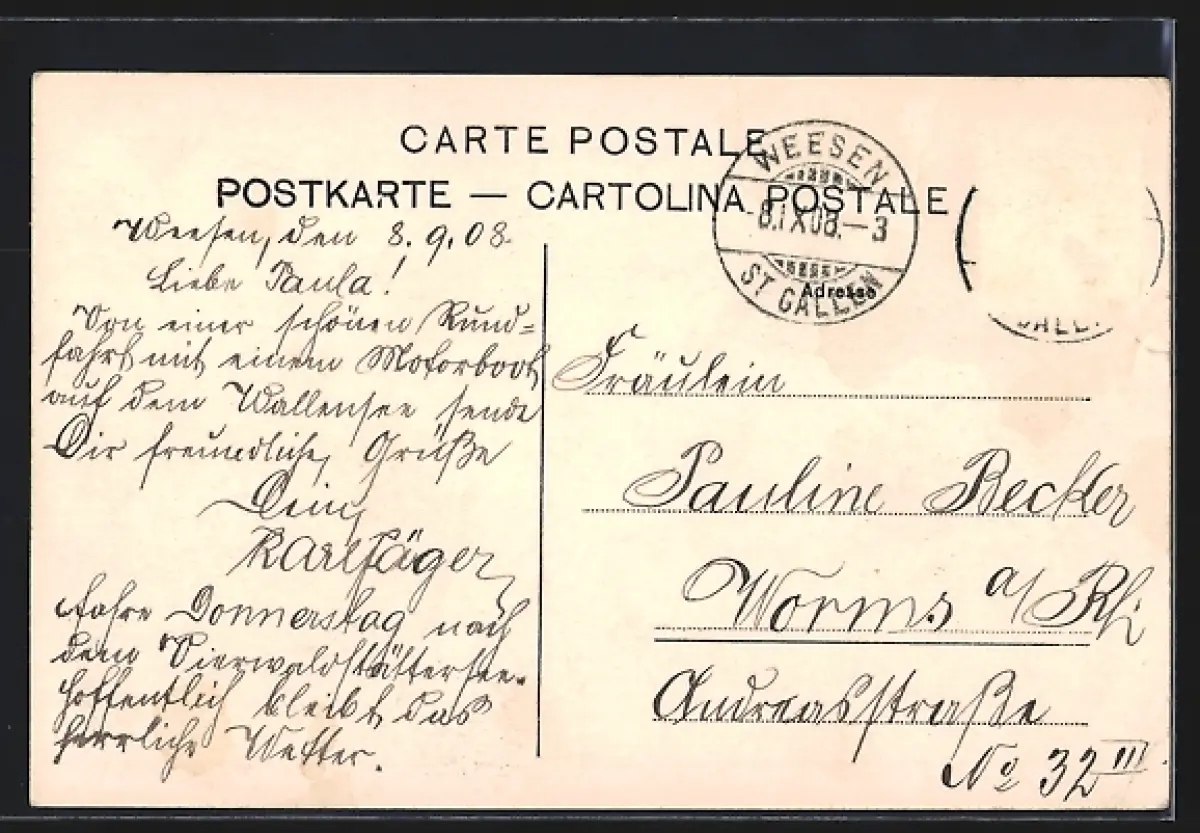 CARTE POSTALE
POSTKARTE — CARTOLINA POSTALE
WEESEN
8.IX.08.—3
ST GALLEN
GALL.
Adresse
Weesen, den 8.9.08.
Liebe Paula!
Von einer schönen Rund=
fahrt mit einem Motorboot
auf dem Wallensee sende
Dir freundliche Grüße
Dein
Karl Jäger
Fahre Donnerstag nach
dem Vierwaldstättersee.
Hoffentlich bleibt das
herrliche Wetter.
Fräulein
Pauline Becker
Worms a/Rh.
Andreasstraße
No 32 III